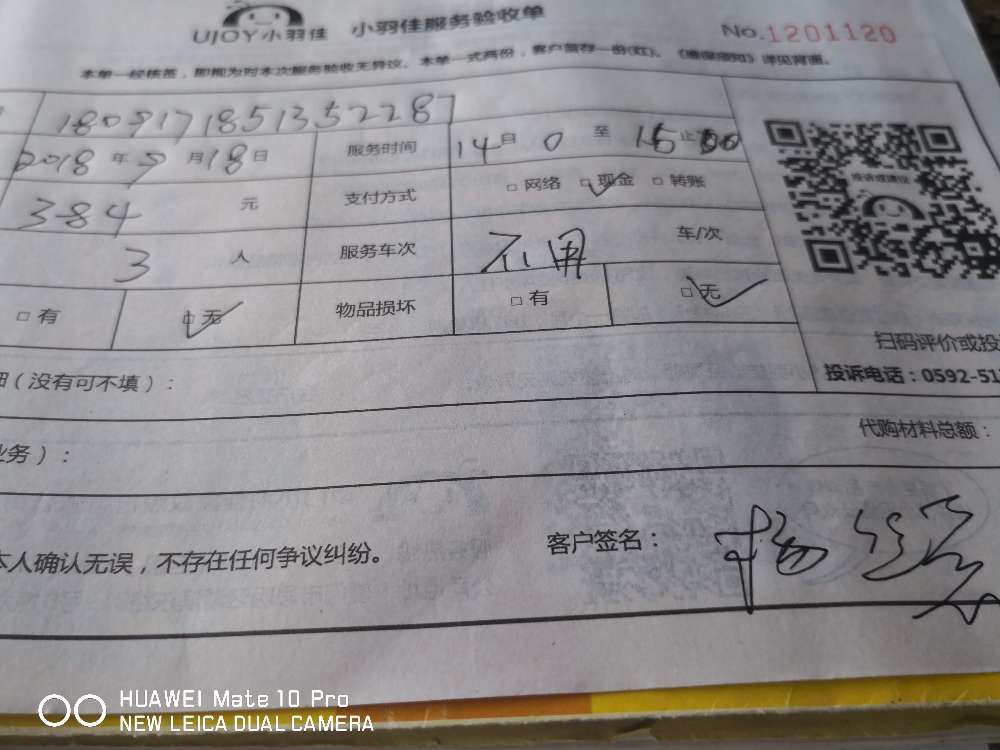 UJOY小羽佳 小羽佳服务验收单 No.1201120
本单一经核签，即视为对本次服务验收无异议。本单一式两份，客户留存一份(红)。
1809171851352287
2018年9月18日 服务时间 14 0 至 15止00
384 元 支付方式 □网络 □现金 □转账
3 人 服务车次 不用 车/次
□有 □无 物品损坏 □有 □无
投诉或建议
扫码评价或投
(没有可不填)： 投诉电话：0592-51
业务)： 代购材料总额：
本人确认无误，不存在任何争议纠纷。 客户签名：杨
HUAWEI Mate 10 Pro
NEW LEICA DUAL CAMERA